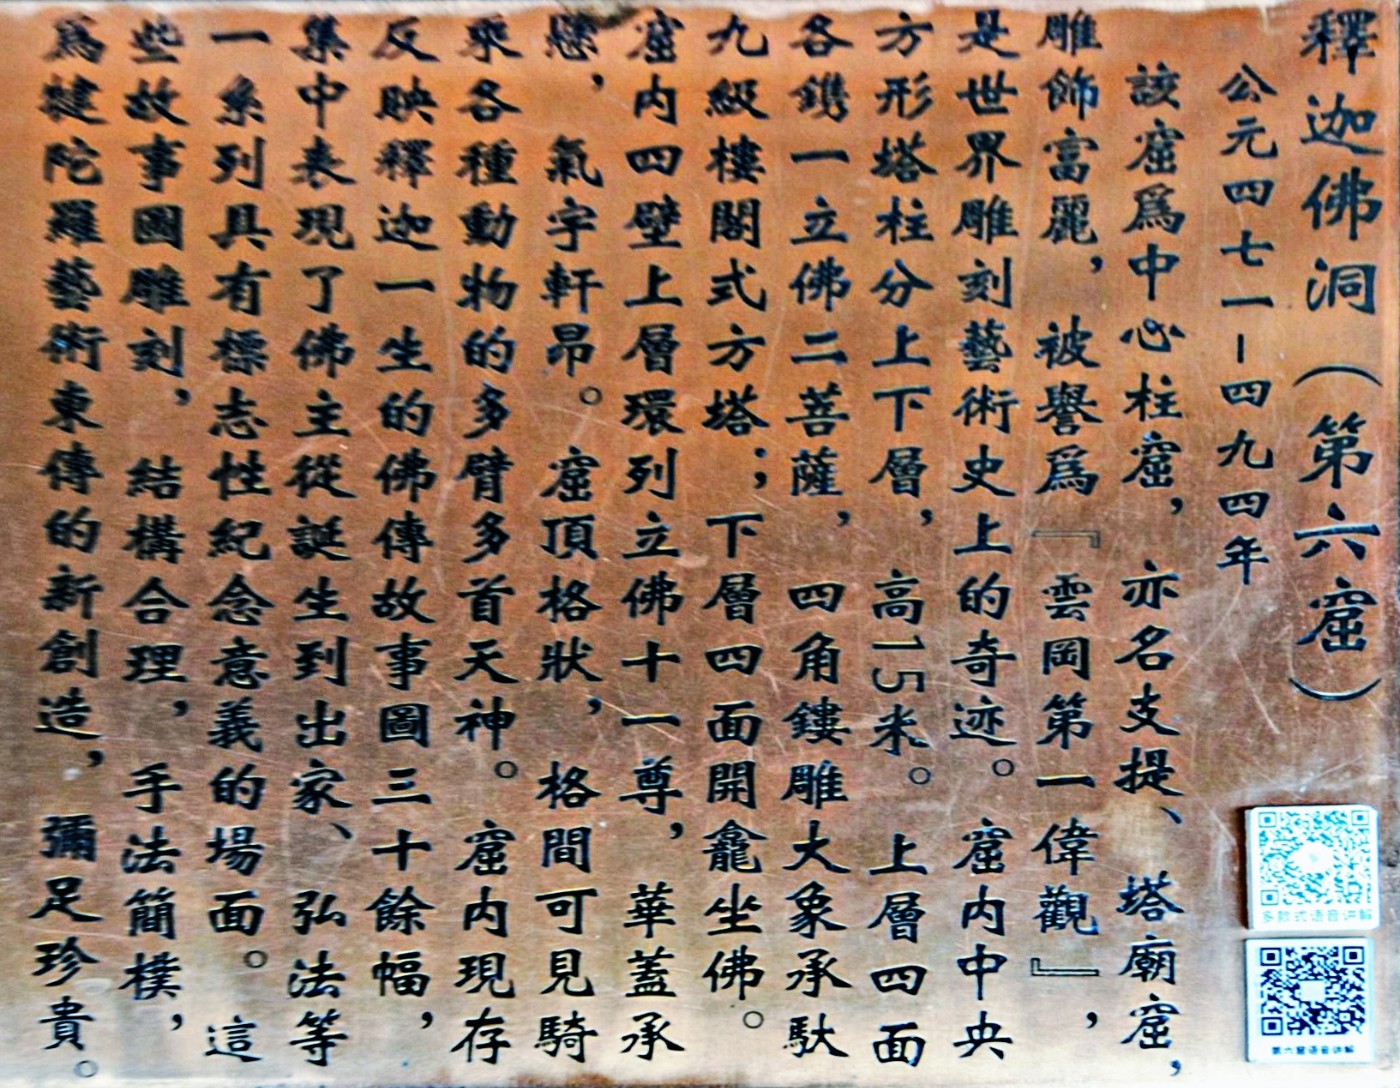 釋迦佛洞（第六窟）
公元四七一－四九四年
該窟爲中心柱窟，亦名支提、塔廟窟，
雕飾富麗，被譽爲『雲岡第一偉觀』，
是世界雕刻藝術史上的奇迹。窟内中央
方形塔柱分上下層，高15米。上層四面
各鐫一立佛二菩薩，四角鏤雕大象承馱
九級樓閣式方塔；下層四面開龕坐佛。
窟内四壁上層環列立佛十一尊，華蓋承
懸，氣宇軒昂。窟頂格狀，格間可見騎
乘各種動物的多臂多首天神。窟内現存
反映釋迦一生的佛傳故事圖三十餘幅，
集中表現了佛主從誕生到出家、弘法等
一系列具有標志性紀念意義的場面。這
些故事圖雕刻，結構合理，手法簡樸，
爲犍陀羅藝術東傳的新創造，彌足珍貴。
多款式语音讲解
第六窟语音讲解